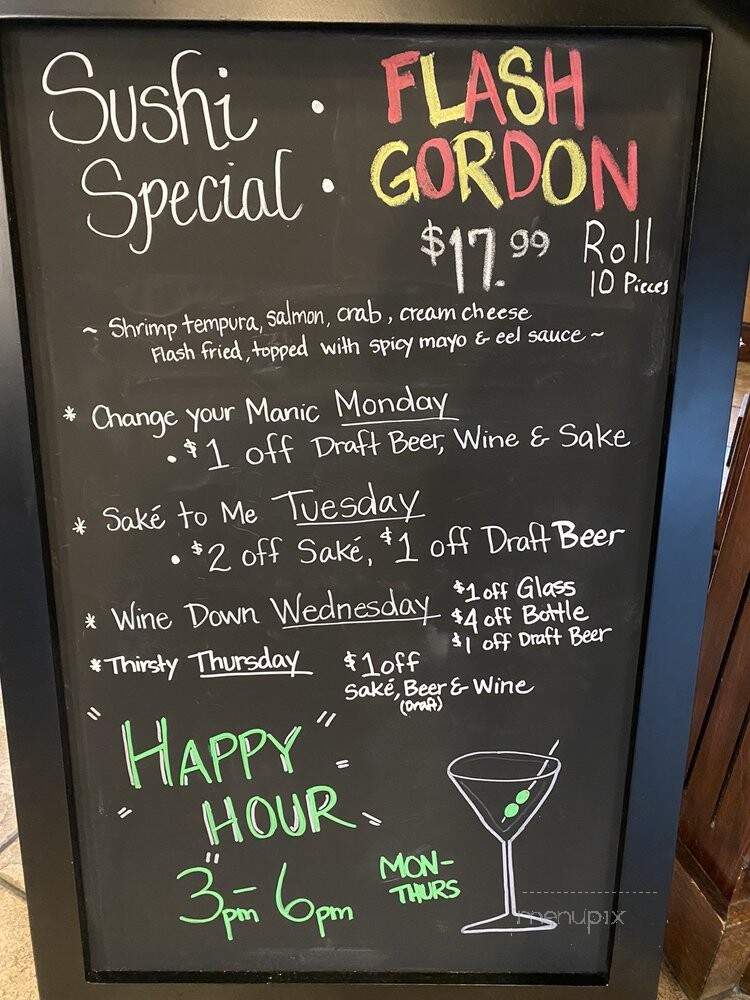 Sushi · FLASH
Special · GORDON
$17.99 Roll
10 Pieces
~ Shrimp tempura, salmon, crab, cream cheese
Flash fried, topped with spicy mayo & eel sauce ~
* Change your Manic Monday
· $1 off Draft Beer, Wine & Sake
* Saké to Me Tuesday
· $2 off Saké, $1 off Draft Beer
* Wine Down Wednesday $1 off Glass
$4 off Bottle
$1 off Draft Beer
* Thirsty Thursday $1 off
Saké, Beer & Wine
(Draft)
HAPPY
HOUR
3pm - 6pm MON-
THURS
menupix